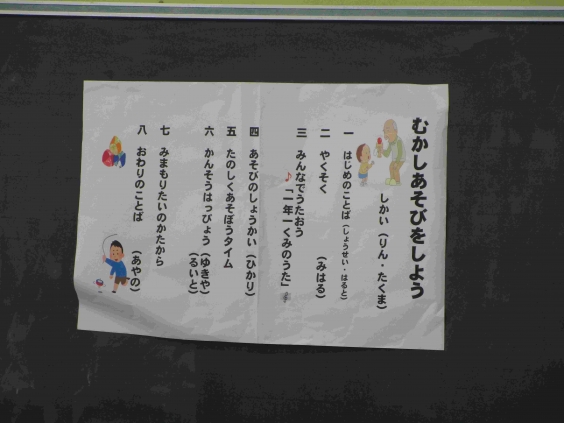 むかしあそびをしよう
しかい（りん・たくま）
一 はじめのことば（しょうせい・はると）
二 やくそく （みはる）
三 みんなでうたおう
♪「一年一くみのうた」
四 あそびのしょうかい（ひかり）
五 たのしくあそぼうタイム
六 かんそうはっぴょう（ゆきや）
（るいと）
七 みまもりたいのかたから
八 おわりのことば （あやの）